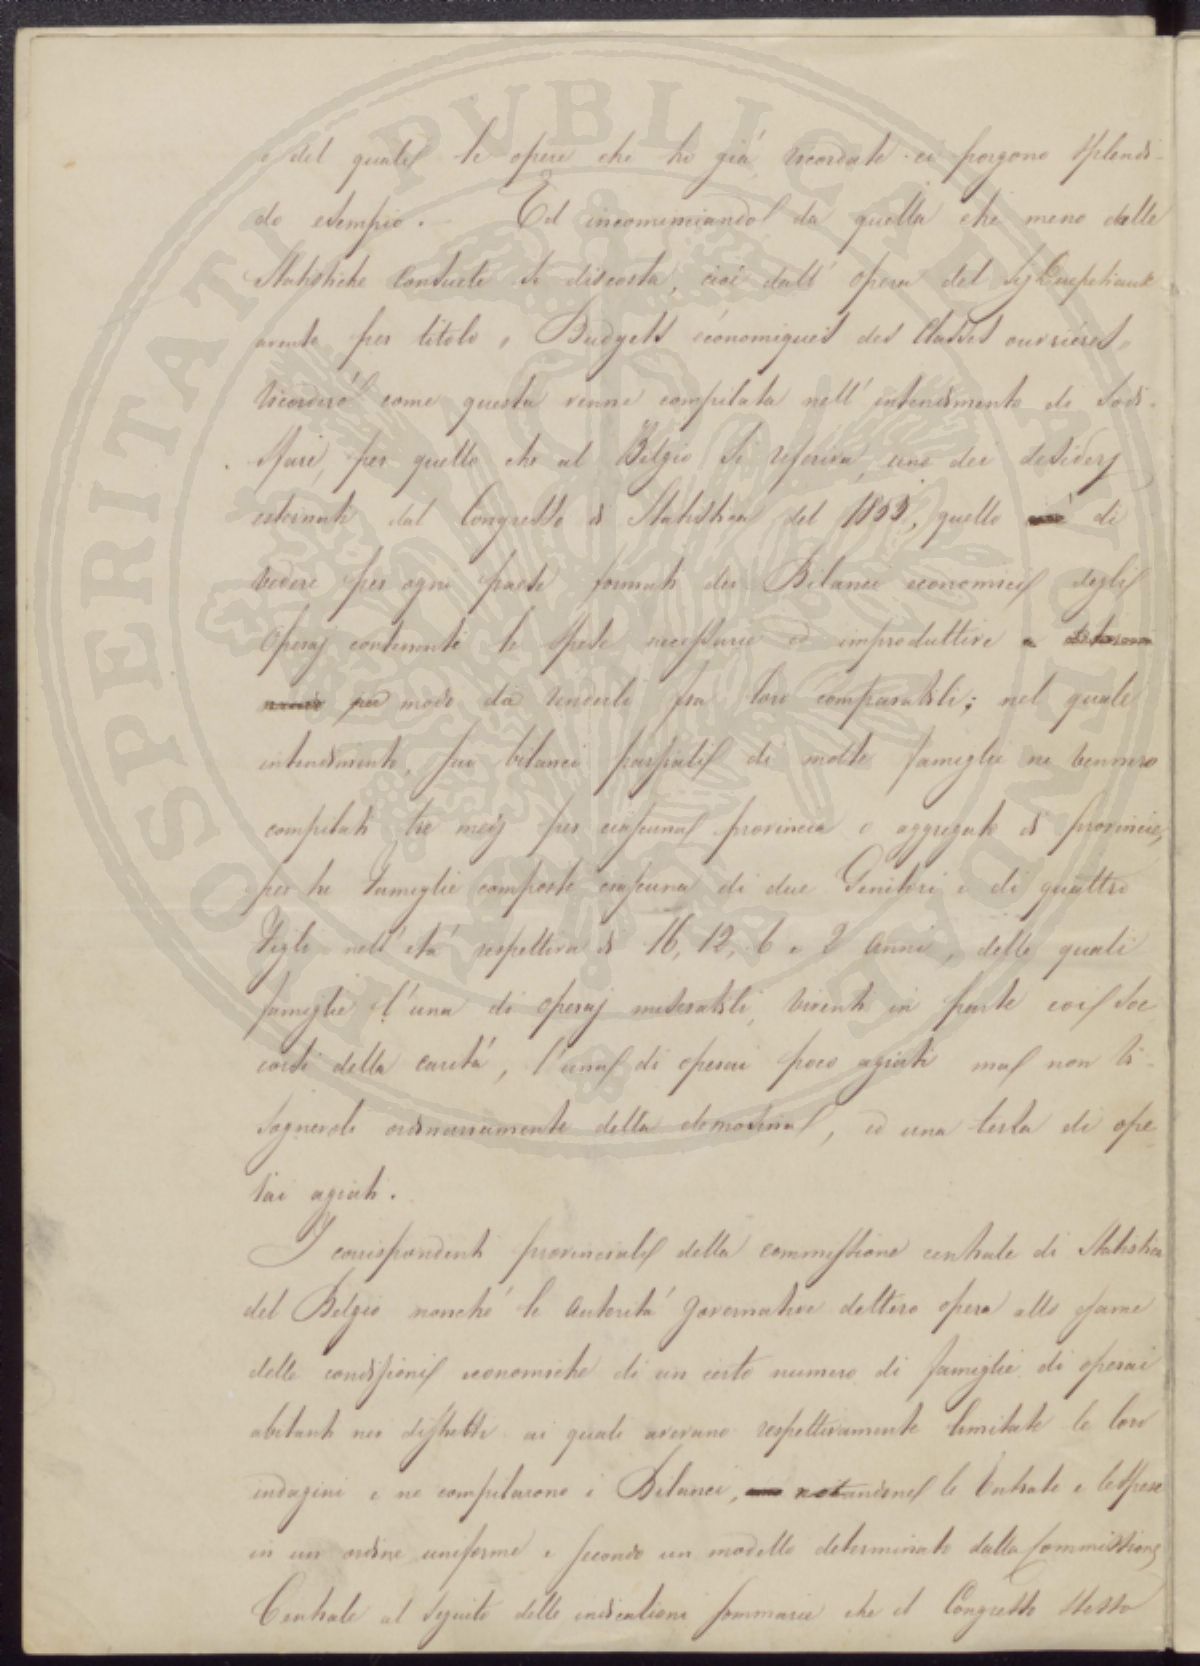 e del quale le opere che ho già ricordate ci porgono splendi-
do esempio. - Ed incominciando da quella che meno dalle
Statistiche consuete si discosta, cioè dall' opera del Sig Ducpetiaux
avente per titolo " Budgets économiques des Classes ouvrières "
ricorderò come questa venne compilata nell' intendimento di sodi-
sfare, per quello che al Belgio si referiva, uno dei desiderj
esternati dal Congresso di Statistica del 1853, quello di
vedere per ogni paese formati dei Bilanci economici degli
Operaj contenenti le spese necessarie ed improduttive
per modo da renderli fra loro comparabili; nel quale
intendimento, fra bilanci parziali di molte famiglie ne vennero
compilati tre medj per ciascuna provincia o aggregato di provincie,
per tre Famiglie composte ciascuna di due Genitori e di quattro
Figli nell' età respettiva di 16, 12, 6 e 2 Anni, delle quali
famiglie l' una di operaj miserabili, viventi in parte coi soc
corsi della carità, l' una di operai poco agiati ma non bi-
sognevoli ordinariamente della elemosina, ed una terza di ope-
rai agiati.
I corrispondenti provinciali della commissione centrale di Statistica
del Belgio nonchè le Autorità governative dettero opera allo esame
delle condizioni economiche di un certo numero di famiglie di operai
abitanti nei distretti ai quali avevano respettivamente limitate le loro
indagini e ne compilarono i Bilanci, notandone le Entrate e le Spese
in un ordine uniforme e secondo un modello determinato dalla Commissione
Centrale al seguito delle indicazioni sommarie che il Congresso stesso
PROSPERITATI PUBLICAE AUGENDAE